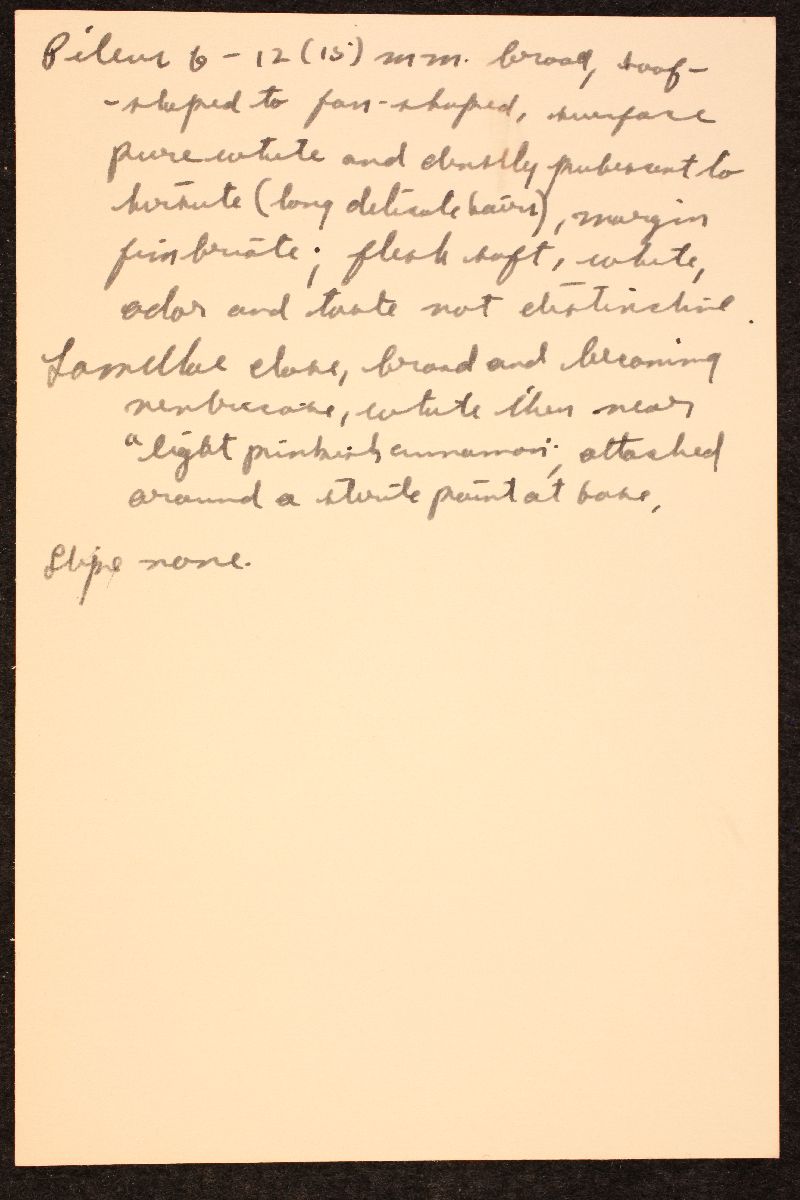 Pileus 6 - 12 (15) mm. broad, hoof-
-shaped to fan-shaped, surface
pure white and densly pubescent to
hirsute (long delicate hairs), margin
fimbriate; flesh soft, white,
odor and taste not distinctive.
Lamellae close, broad and becoming
ventricose, white then near
"light pinkish cinnamon", attached
around a sterile point at base,
Stipe none.